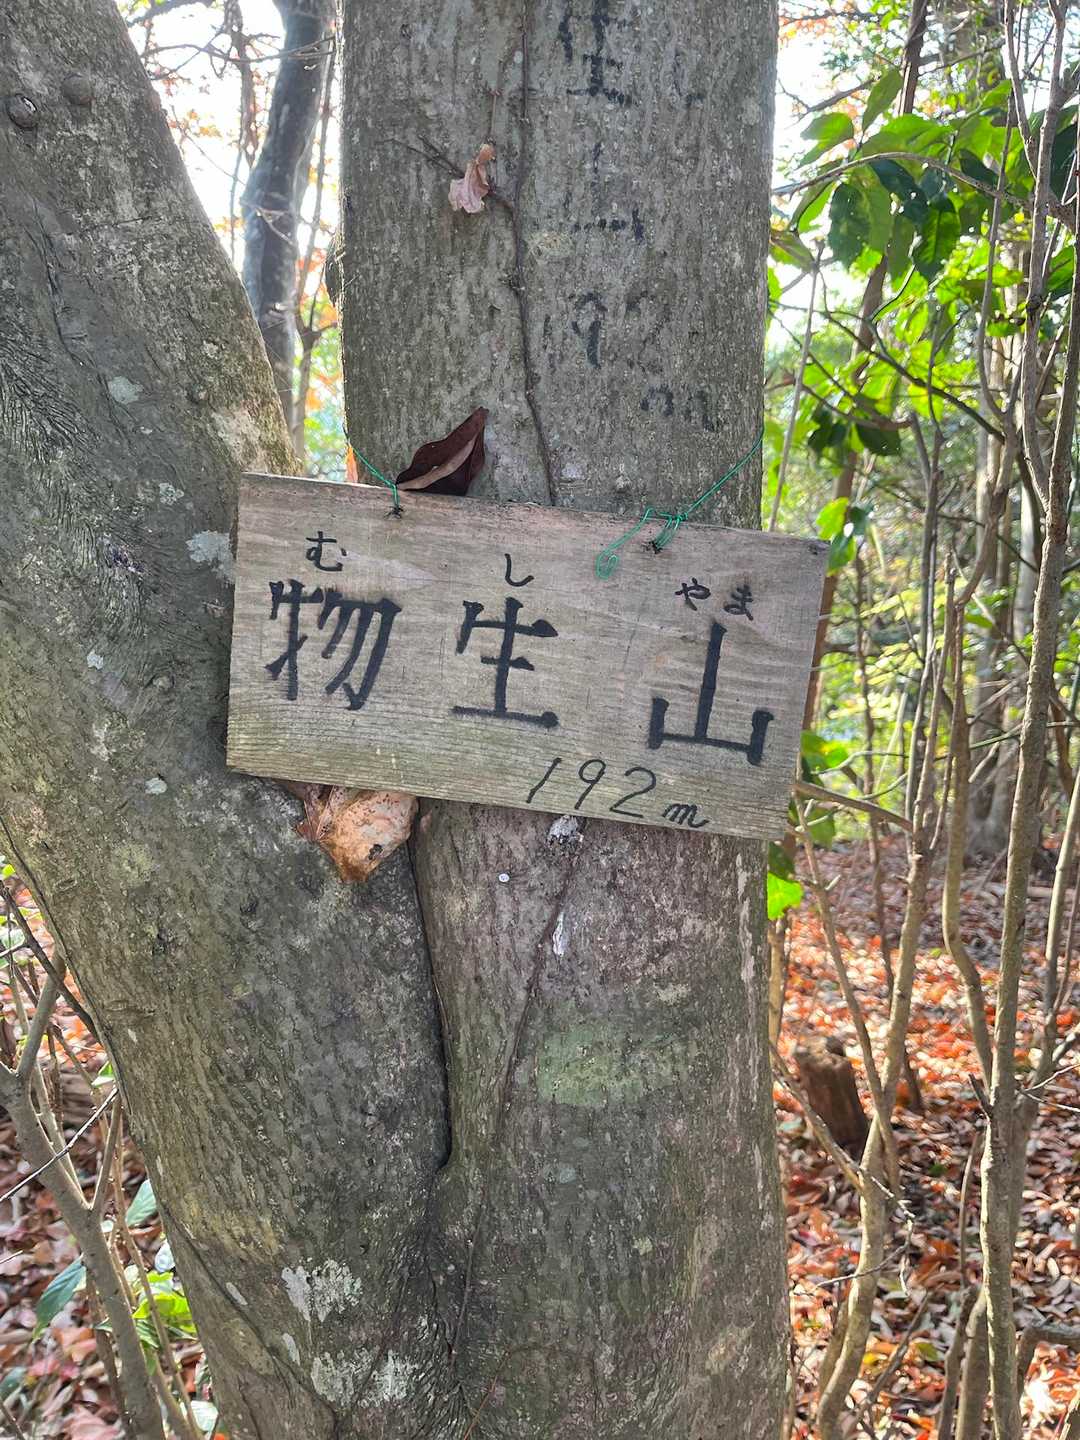 生
山
192
m
む し やま
物生山
192m